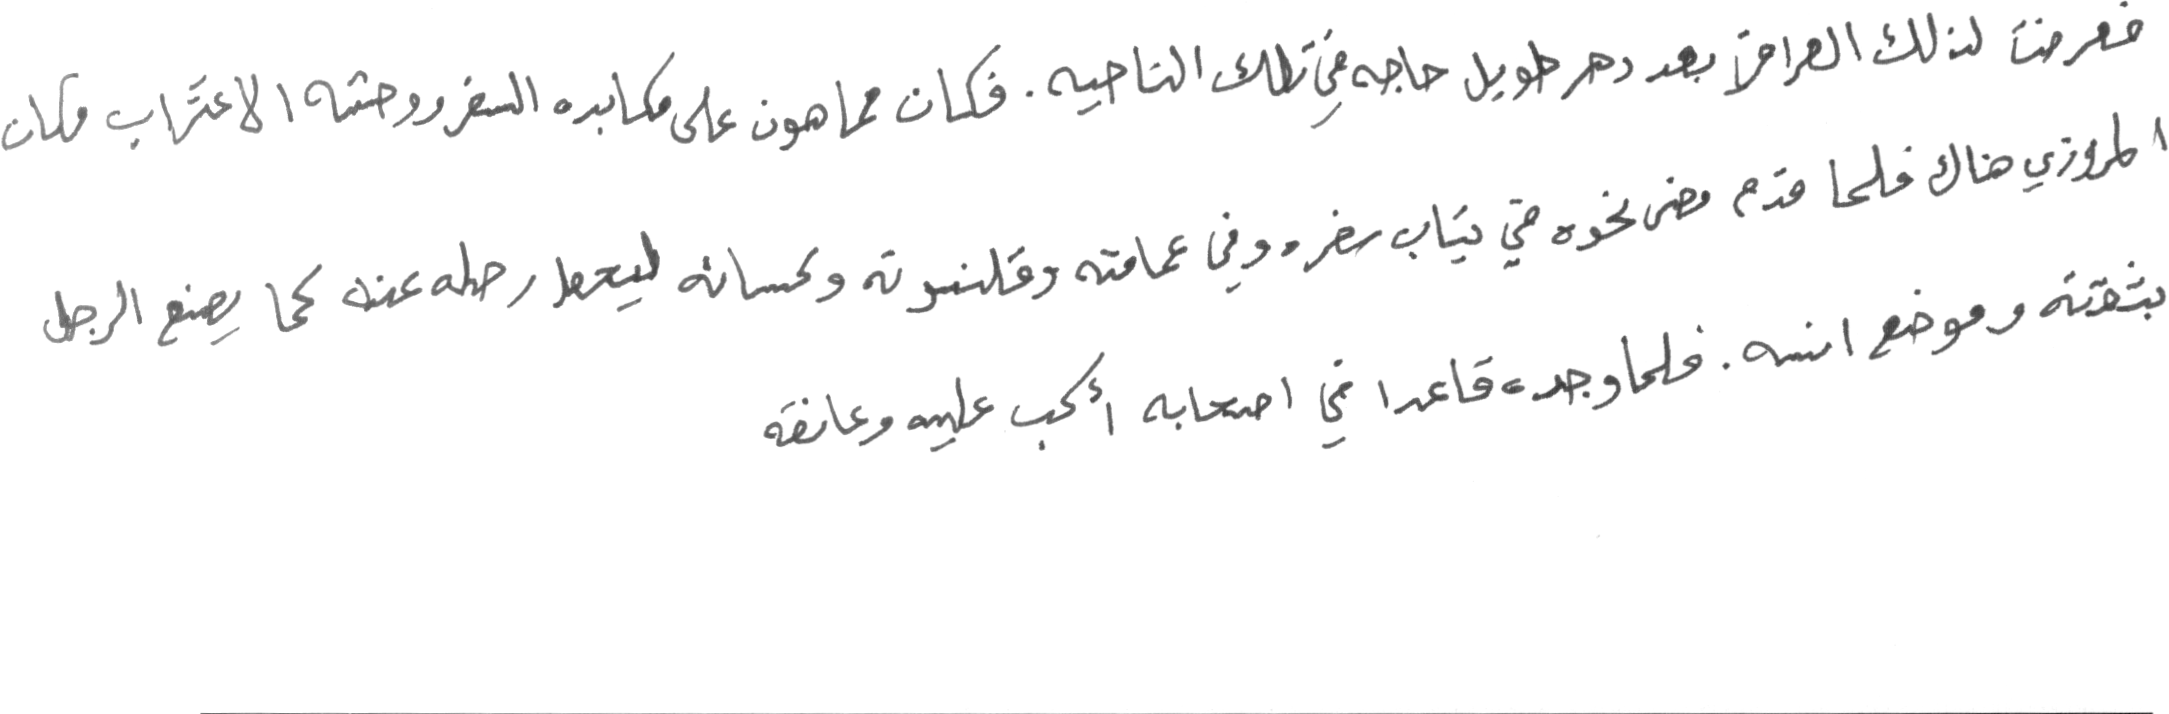 فعرضت لذلك العراقي بعد دهر طويل حاجه في تلك الناحيه . فكان مما هون على مكابده السفر ووحشه الاغتراب مكان
المروزي هناك فلما قدم مضى نحوه في ثياب سفره وفي عمامته وقلنسوته وكسائه ليحط رحله عنده كما يصنع الرجل
بثقته وموضع انسه . فلما وجده قاعدا في اصحابه أكب عليه وعانقه